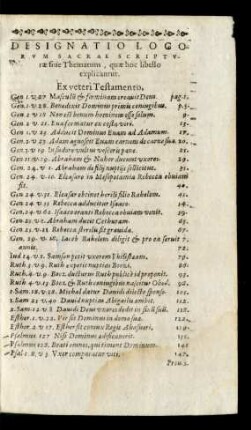 DESIGNATIO LOCO-
RVM SACRAE SCRIPTV-
rae siue Thematum, quae hoc libello
explicantur.
Ex veteri Testamento,
Gen 1. v. 27 Masculū & foeminam creauit Deus. pag. 1.
Gen 1. v. 28. Benedixit Dominus primis coniugibus. p. 5.
Gen 2. v. 18 Non est bonum hominem esse solum. 9.
Gen 2. v. 21. Euae formatae ex costa viri. 13.
Gen 2. v. 23 Adduxit Dominus Euam ad Adamum. 17.
Gen 2. v. 23 Adam agnoscit Euam carnem de carne sua 20.
Gen 3. v. 19. In sudore vultus vesceris pane.
Gen 11. v. 29. Abraham & Nahor ducunt vxores. 29.
Gen 24. v. 1. Abraham de filij nuptijs sollicitus. 35.
Gen 24. v. 10. Eleasaro in Mesopotamia Rebecca obuiam
fit. 40.
Gen 24. v. 51. Eleasar obtinet herili filio Rebeccam. 45.
Gen 24. v. 61 Rebecca adducitur Isaaco.
Gen 24. v. 62 Isaaco eunti Rebecca obuiam venit.
Gen 25. v. 1. Abraham ducit Cethuram. 65.
Gen 25. v. 21. Rebecca sterilis fit grauida.
Gen. 29. v. 18. Iacob Rahelem diligit & pro ea seruit 7.
annis. 72.
Iud 14. v. 1. Samson petit vxorem Thimnaeam. 79.
Ruth 3. v. 9. Ruth expetit nuptias Boozi. 86.
Ruth 4. v. 9. Booz ducturus Ruth publicè id proponit. 95.
Ruth 4. v. 13 Booz & Ruth coniugibus nascitur Obed.
1 Sam. 18. v. 28. Michol datur Dauidi dilecto sponso.
1 Sam 25. v. 40 Dauid nuptias Abigailis ambit.
2 Sam 12 v 8 Dauidi Deus vxores dedit in
Esther 1. v. 22. Vir sit Dominus in domo sua.
Esther 2. v. 17. Esther fit coniunx Regis Ahasueri.
Psalmus 127 Nisi Dominus aedificauerit.
Psalmus 128. Beati omnes, qui timent Dominum.
Psal 128. v 3 Vxor comparatur viti. 147.
Prou 5.